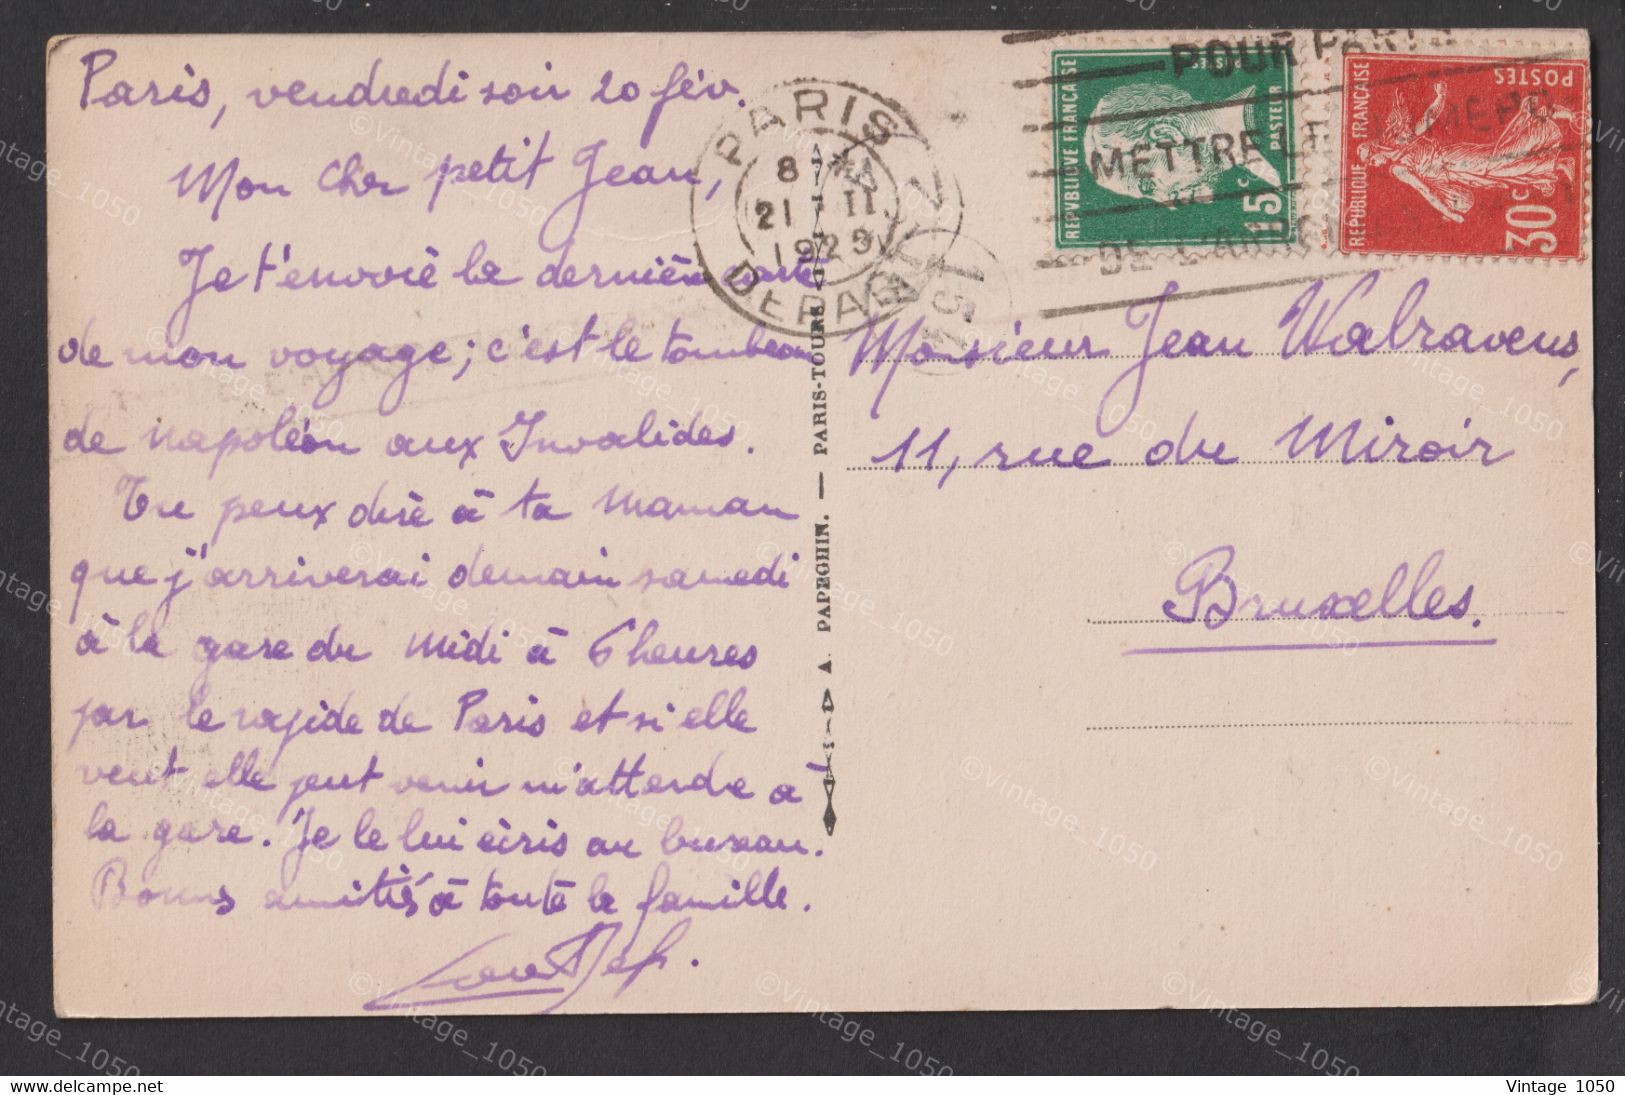 Paris, vendredi soir 20 fév.
Mon cher petit Jean,
Je t'envoie la dernière carte
de mon voyage; c'est le tombeau
de Napoléon aux Invalides.
Tu peux dire à ta maman
que j'arriverai demain samedi
à la gare du midi à 6 heures
par le rapide de Paris et si elle
veut elle peut venir m'attendre à
la gare. Je le lui écris au bureau.
Bonnes amitiés à toute la famille.
PARIS
8
21 II
DEPART
PAPEGHIN. — PARIS-TOURS
REPVBLIQVE FRANÇAISE
POSTES
PASTEUR
15c
REPUBLIQUE FRANÇAISE
POSTES
30c
POUR PARIS
METTRE LE NUMERO
Monsieur Jean Walravens,
11, rue du Miroir
Bruxelles.
©Vintage_1050
Vintage 1050
delcampe.net